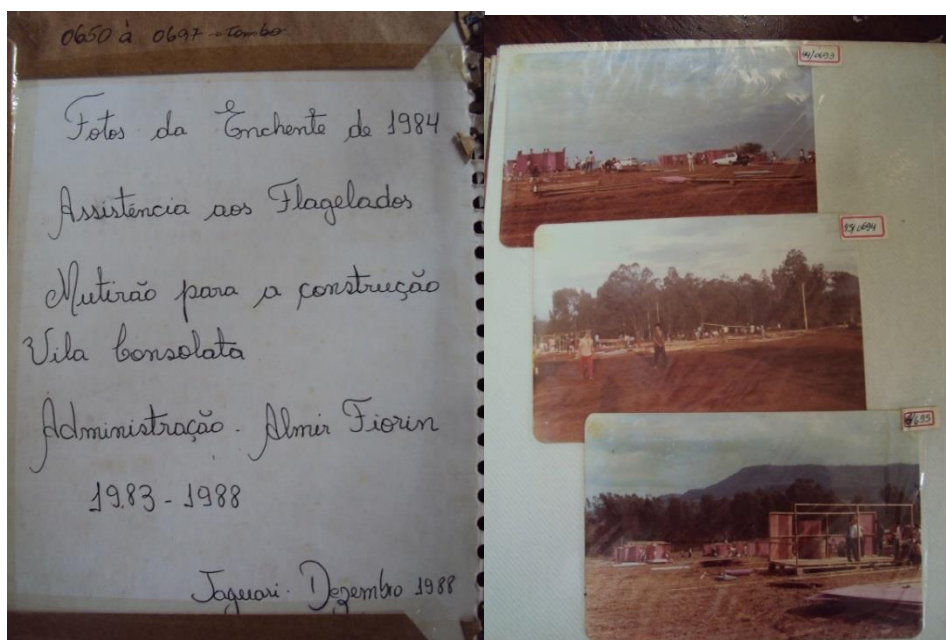 0650 à 0697 - Tombo
Fotos da Enchente de 1984
Assistência aos Flagelados
Mutirão para a construção
Vila Consolata
Administração. Almir Fiorin
1983 - 1988
Jaguari. Dezembro 1988
94/0693
95/0694
/695